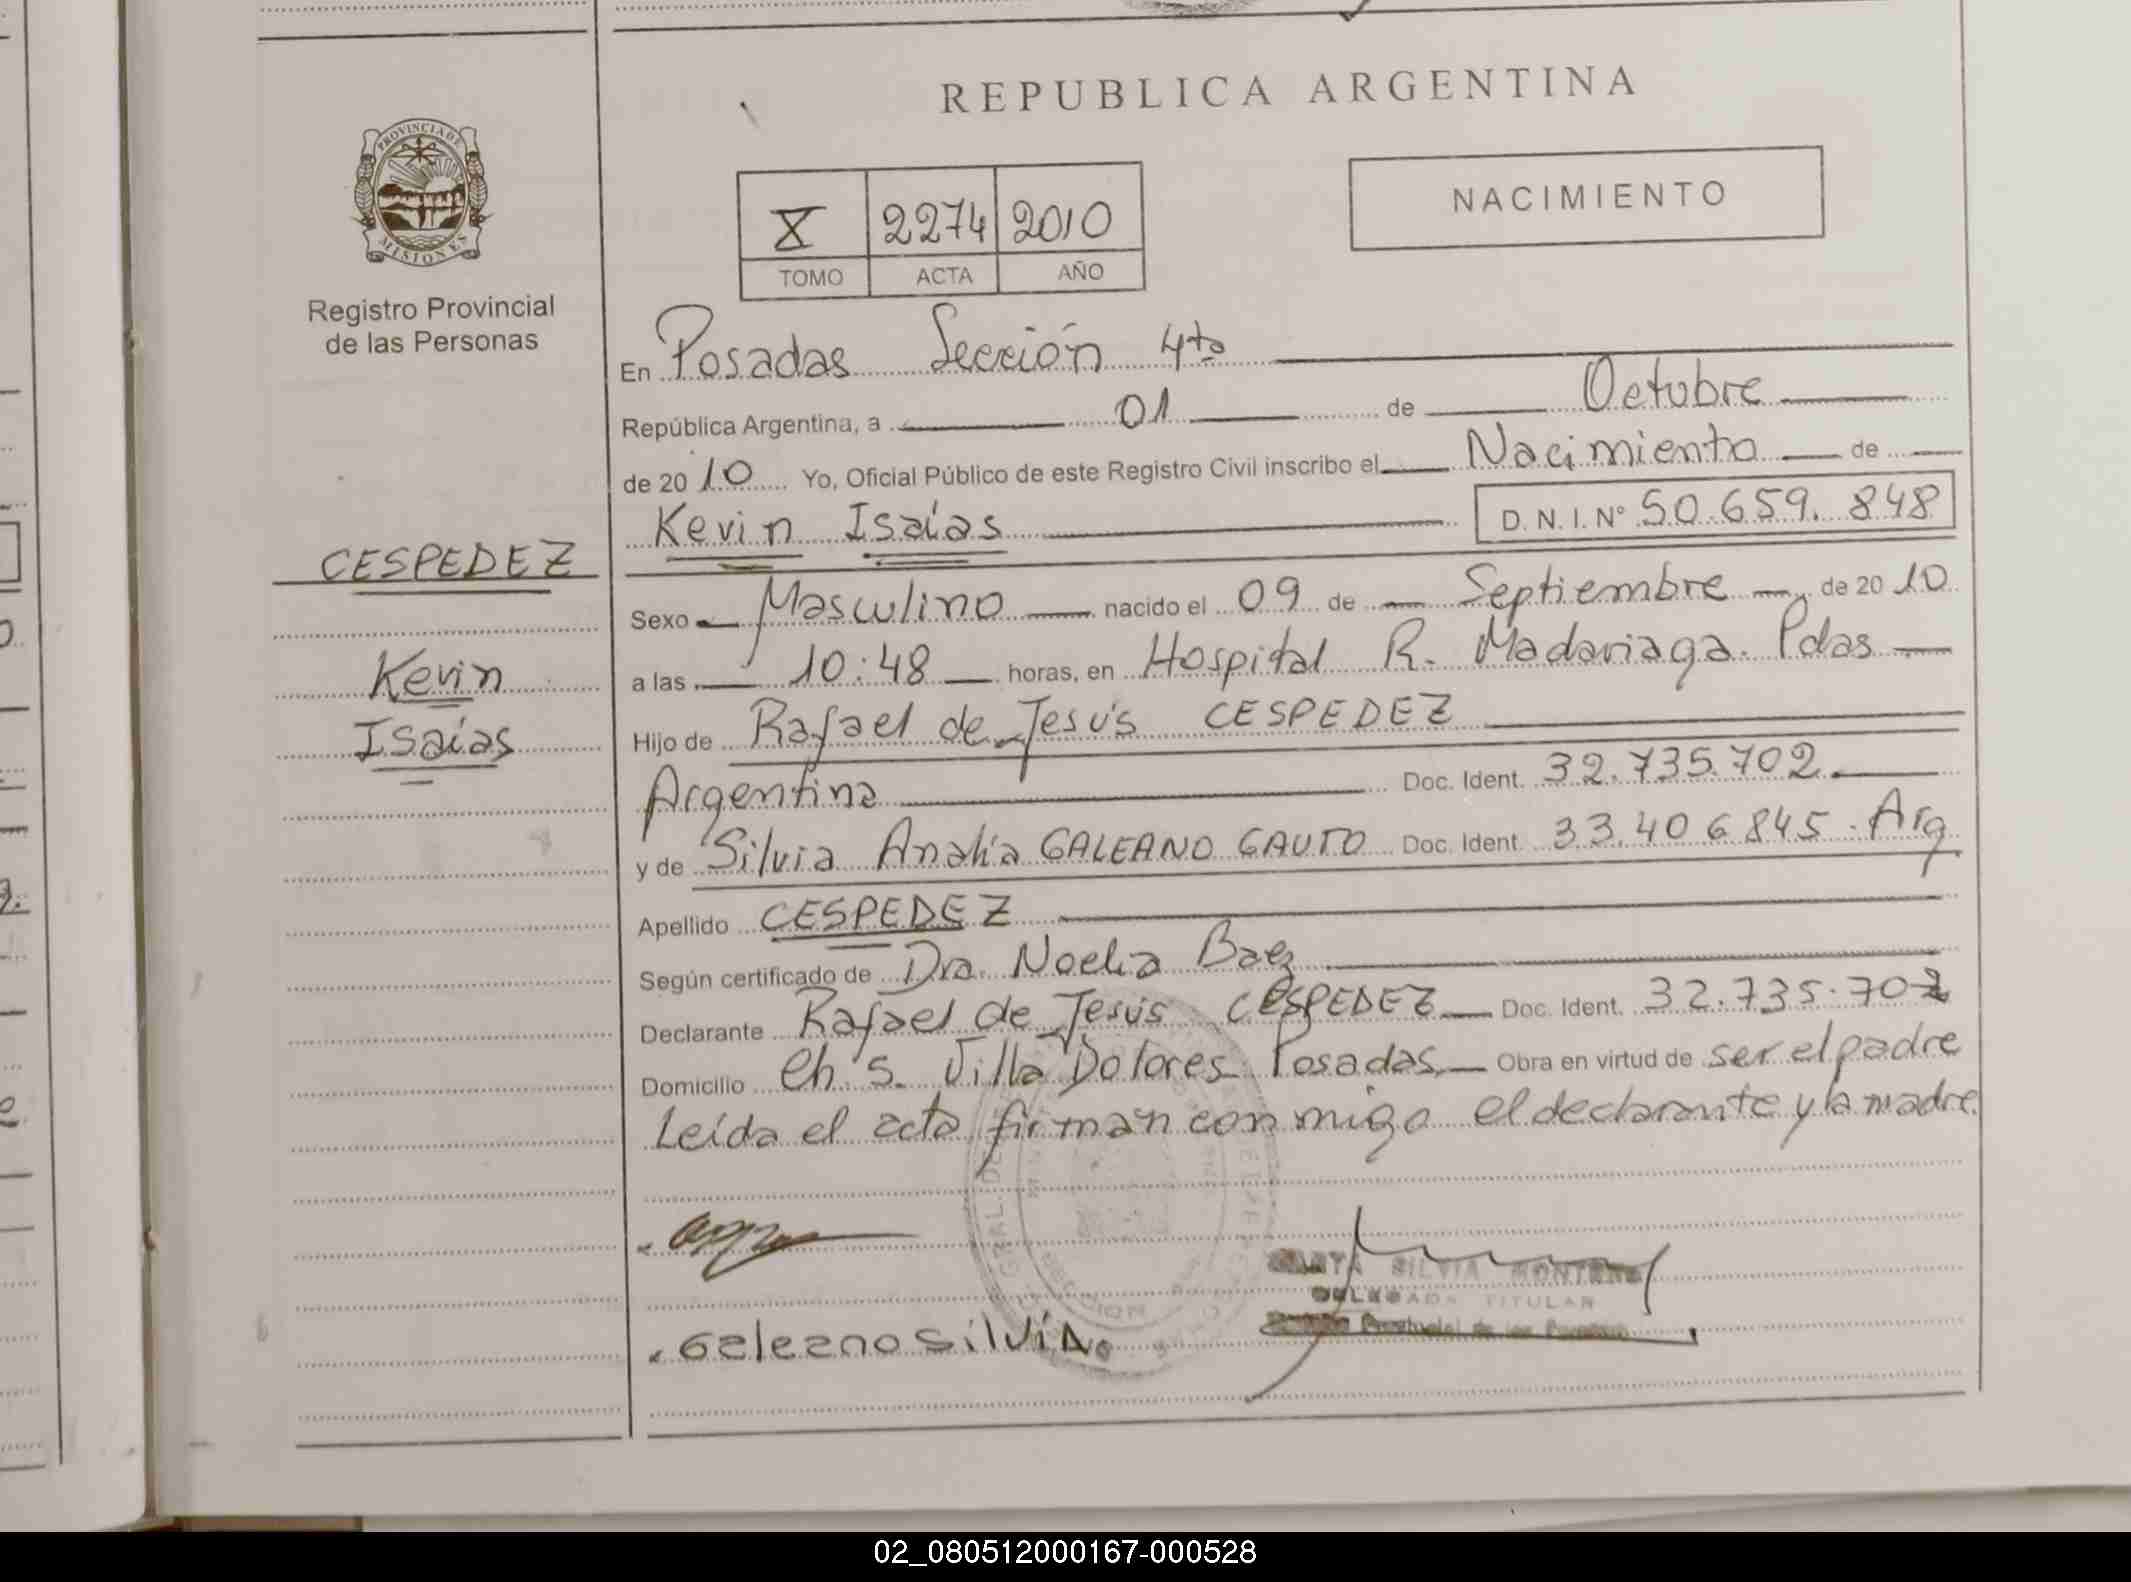 REPUBLICA ARGENTINA
NACIMIENTO
X 2274 2010
TOMO ACTA AÑO
PROVINCIA DE MISIONES
Registro Provincial
de las Personas
CESPEDEZ
Kevin
Isaías
En Posadas Sección 4ta
República Argentina, a 01 de Octubre
de 2010 Yo, Oficial Público de este Registro Civil inscribo el Nacimiento de
Kevin Isaías D. N. I. N° 50.659.848
Sexo Masculino nacido el 09 de Septiembre de 2010
a las 10:48 horas, en Hospital R. Madariaga. Pdas
Hijo de Rafael de Jesús CESPEDEZ
Argentina Doc. Ident. 32.735.702.
y de Silvia Analía GALEANO GAUTO Doc. Ident. 33.406845. Arg
Apellido CESPEDEZ
Según certificado de Dra. Noelia Baez
Declarante Rafael de Jesús CESPEDEZ Doc. Ident. 32.735.702
Domicilio Ch. S. Villa Dolores Posadas. Obra en virtud de ser el padre
Leída el acta firman conmigo el declarante y la madre.
SILVIA MONTERO
DELEGADA TITULAR
Provincial de las Personas
Galeano Silvia
02_080512000167-000528